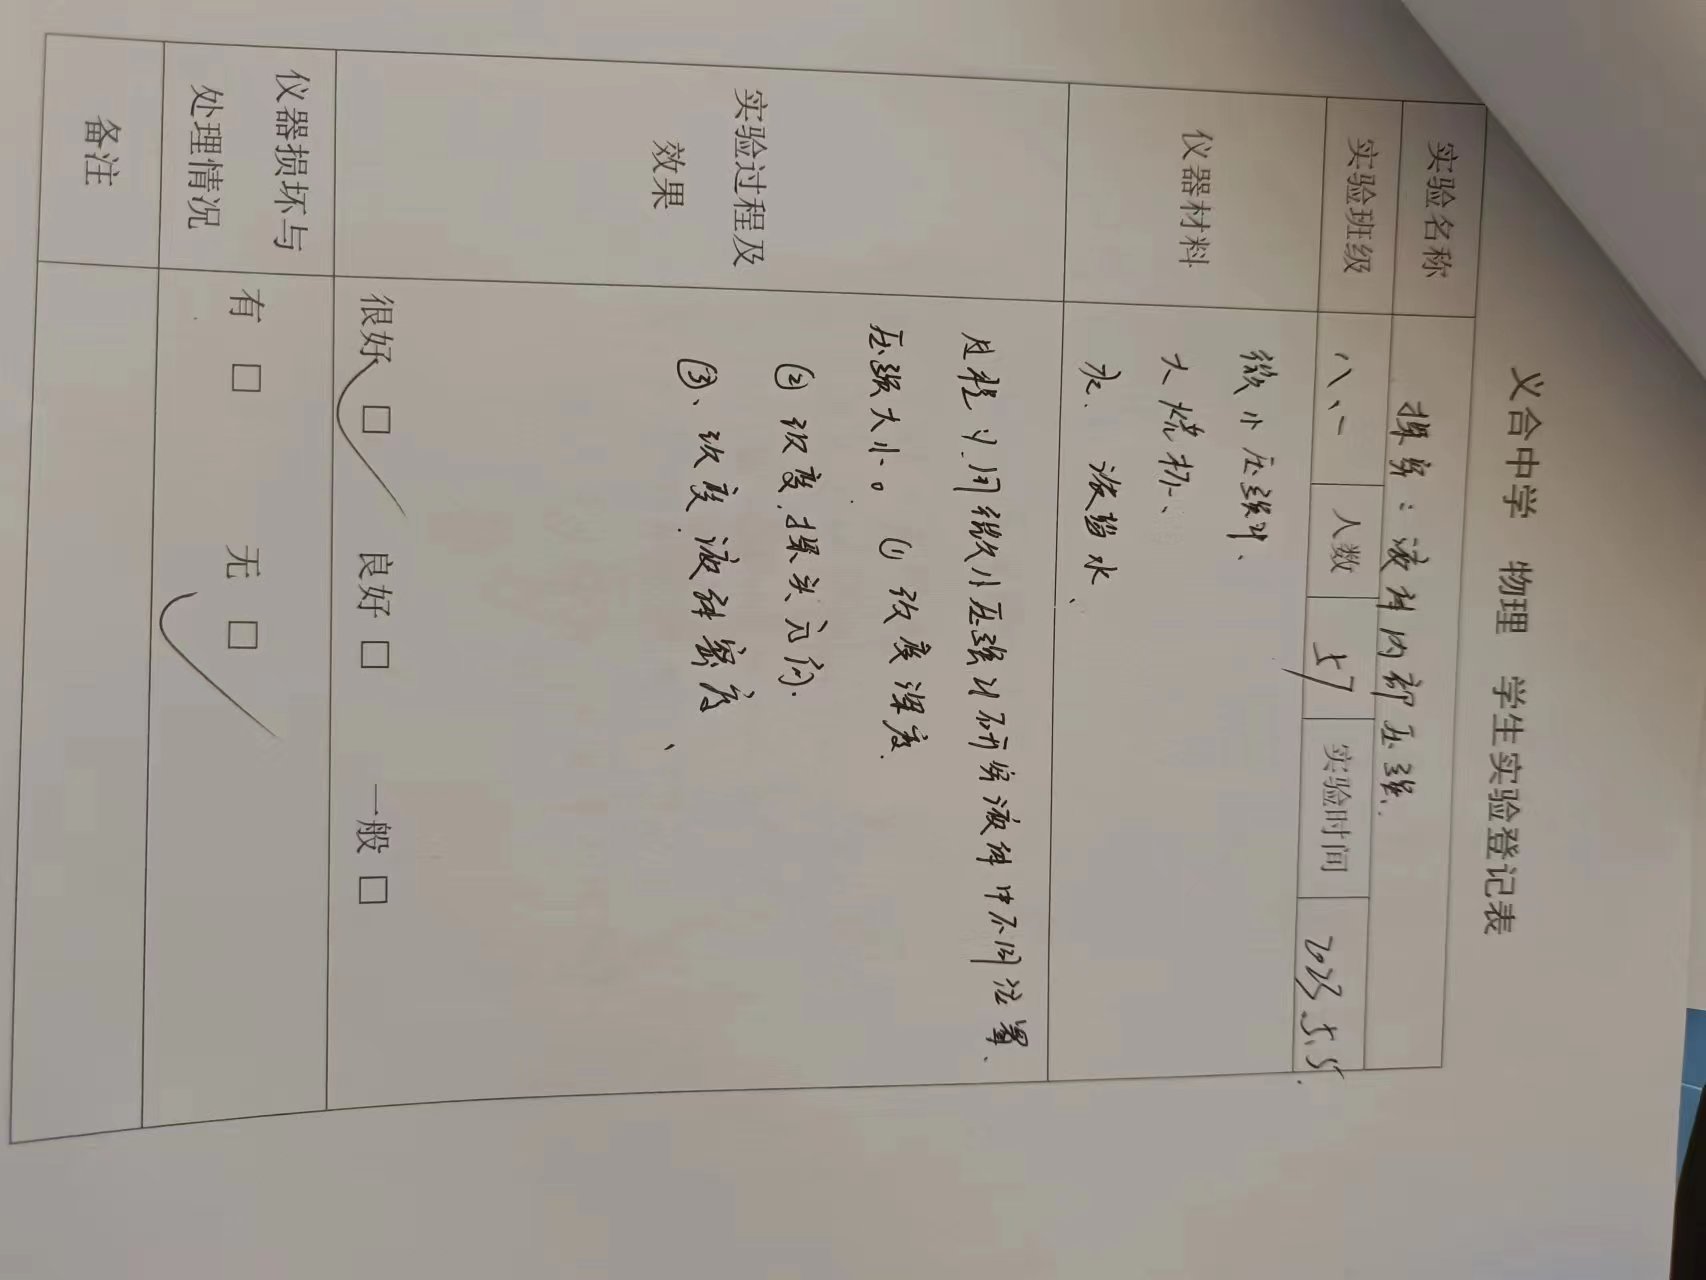 义合中学 物理 学生实验登记表
实验名称 探究:液体内部压强.
实验班级 八、二 人数 57 实验时间 2023.5.5.
仪器材料 微小压强计、
大烧杯、
水、浓盐水、
实验过程及
效果
过程 用微小压强计研究液体中不同位置、
压强大小。(1)改变深度.
② 改变探头方向.
③、改变液体密度、
很好 □ 良好 □ 一般 □
仪器损坏与
处理情况
有 □ 无 □
备注